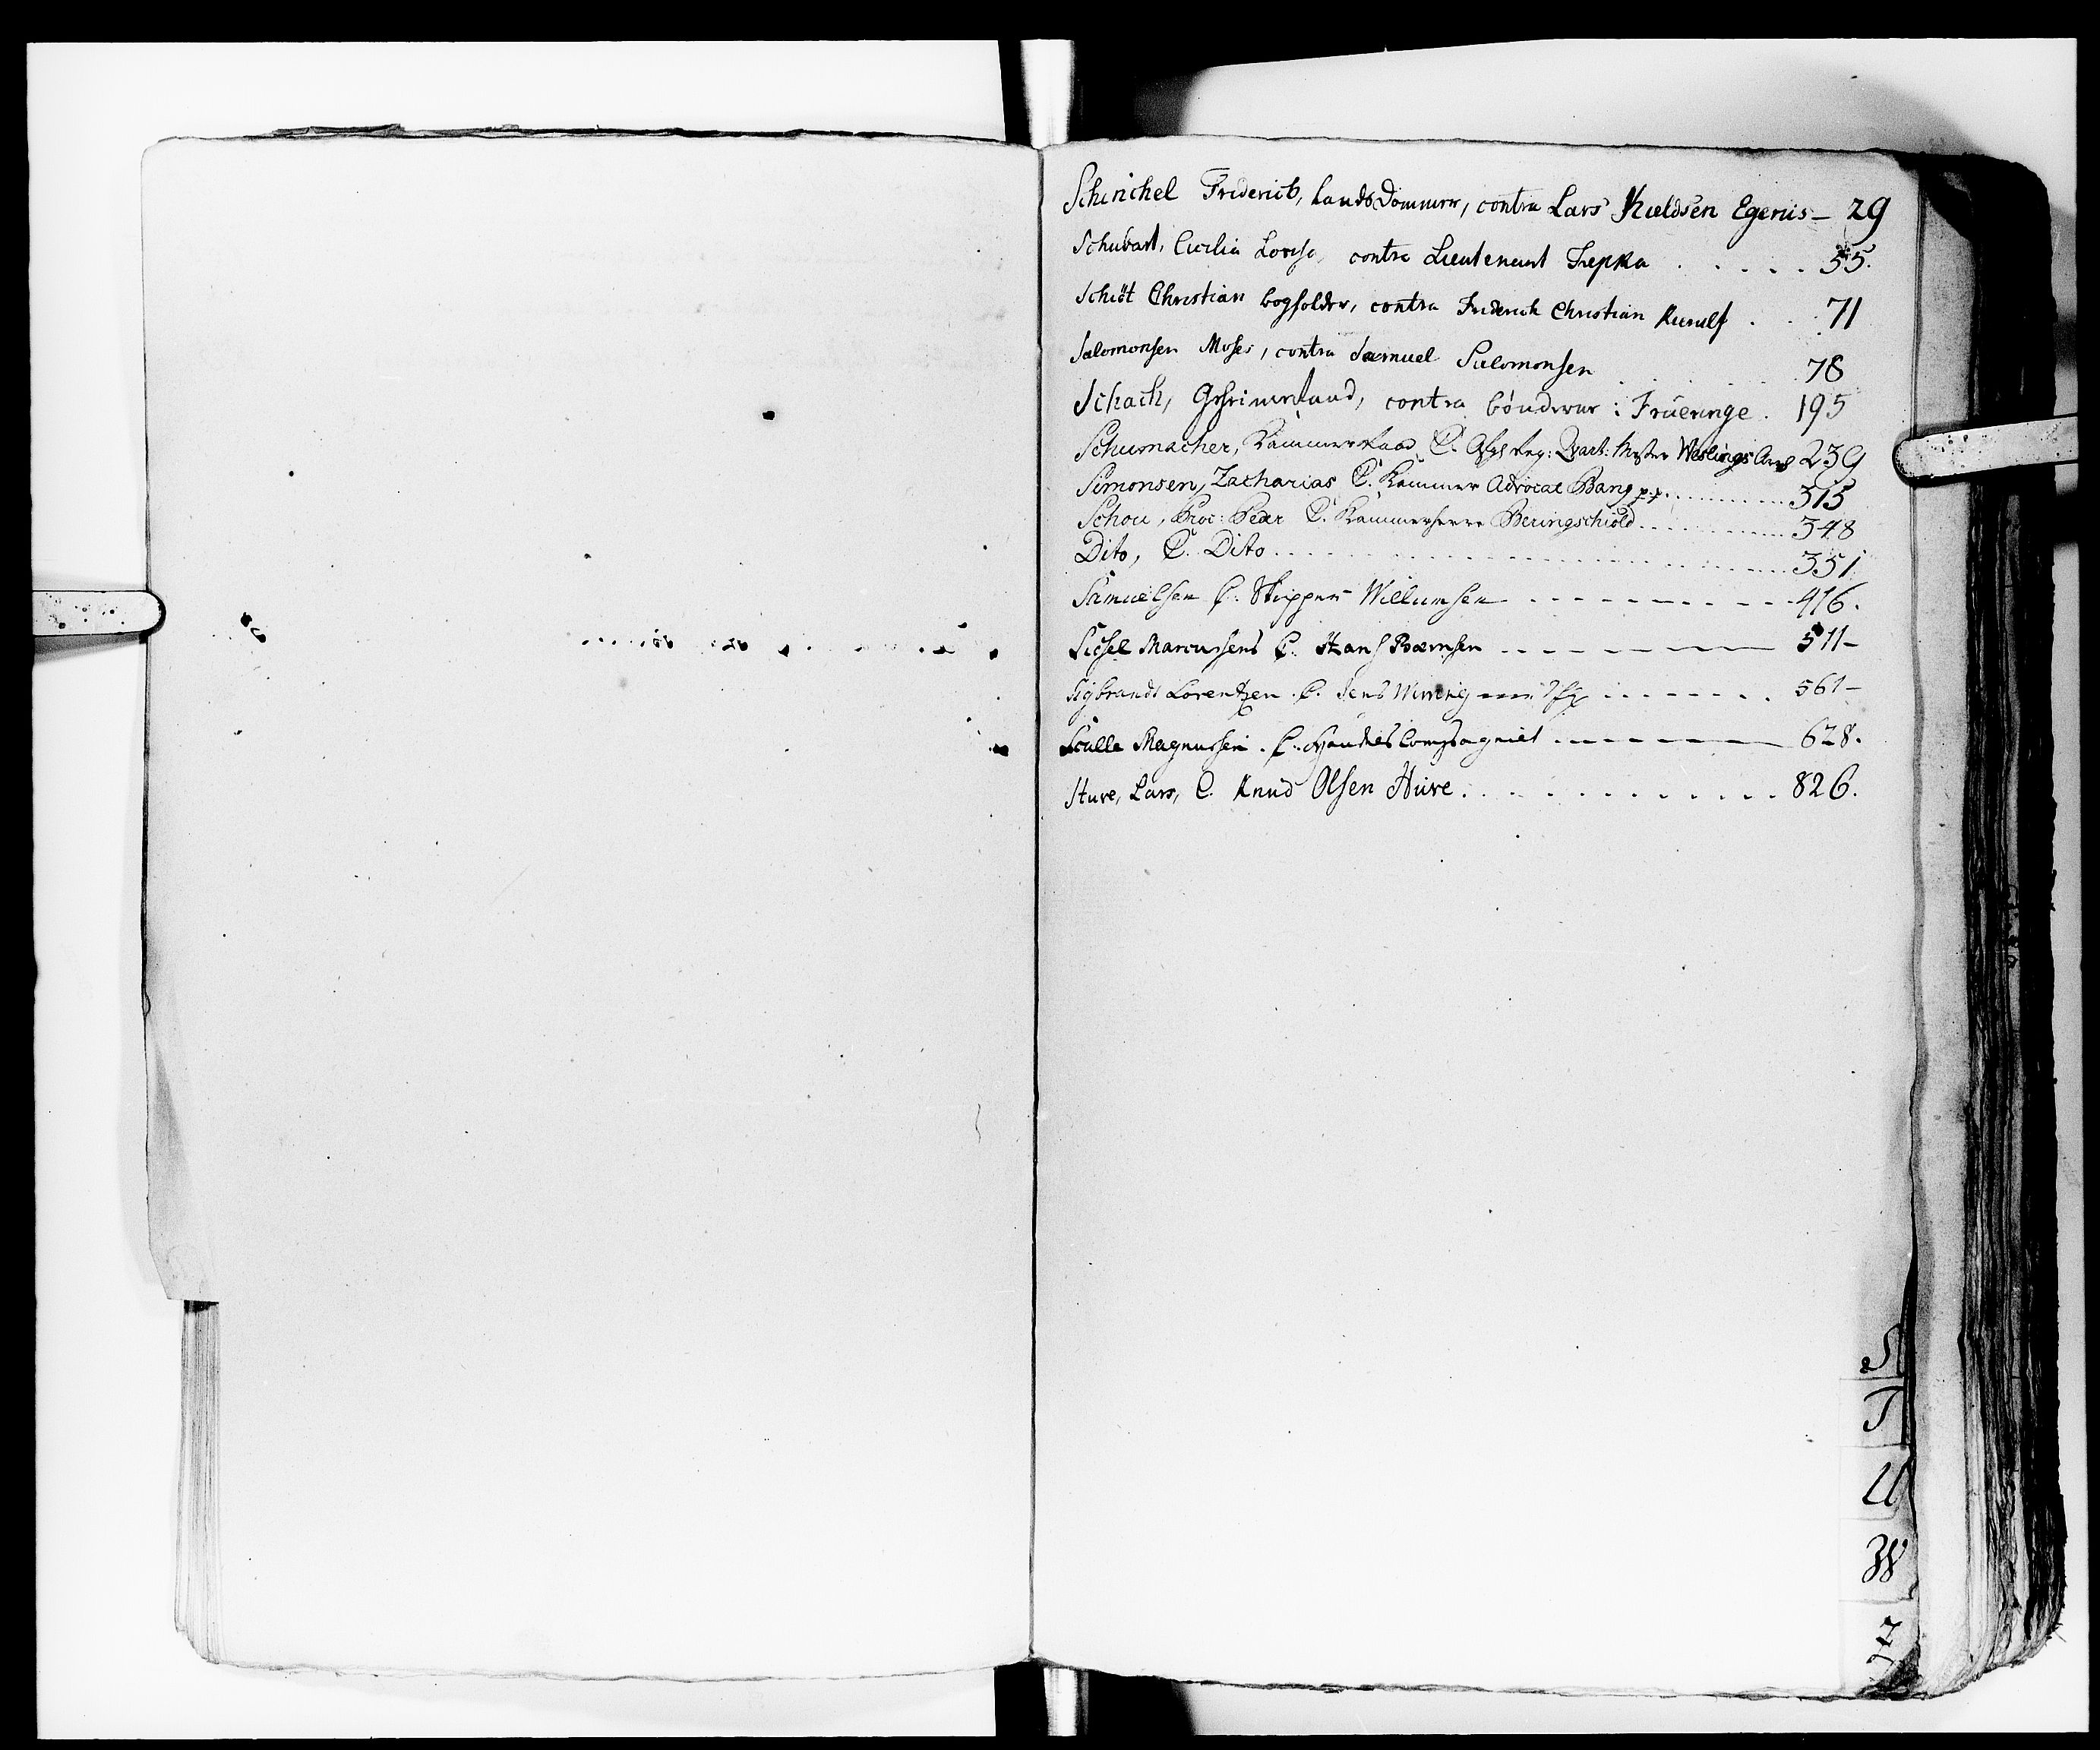 Schinchel Friderich, LandsDommer, contra Lars Kieldsen Egeriis — 29
Schubart, Cicilia Lovise, contra Lieutenant Trepka . . . . . 55.
Schiöt Christian bogholder, contra Friderich Christian . . 71
Salomonsen Moses, contra Samuel Salomonsen . . . 78
Schach, Geheimeraad, contra bönderne i Frueringe . 195
Schumacher, Kammerraad C. Reg: Qvart: Mester Weslings Arv 239
Simonsen, Zacharias C. Kammer Advocat Bang p.p. . . . . 315
Schou, Proc: Peder C. Kammerherre Beringschiold . . . . . 348
Dito, C. Dito . . . . . 351
Samuelsen C. Skipper Willumsen - - - - - 416.
Sidsel Marcussens C. Hans - - - - 511-
Sÿbrandt Lorentzen . C. Jens Winding - - - - 561-
Sculle Magnussen . C. Handels Compagniet - - - - 628.
Sture, Lars, C. Knud Olsen Hiire . . . . . 826.
S
T
U
W